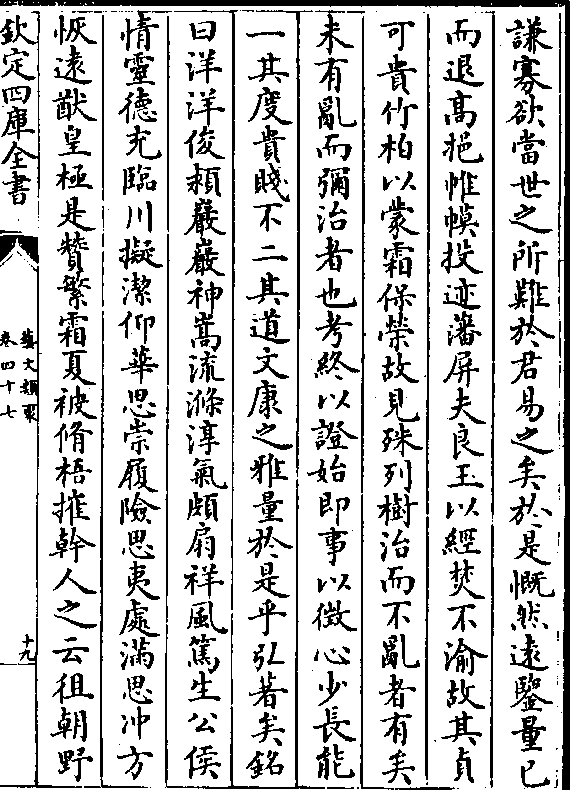 謙寡欲當世之所難於君易之矣於是慨然遠鑒量已
而退高挹帷幙投迹藩屏夫良玉以經焚不渝故其貞
可貴竹柏以蒙霜保榮故見殊列樹治而不亂者有矣
未有亂而彌治者也考終以證始即事以徵心少長能
一其度貴賤不二其道文康之雅量於是乎弘著矣銘
曰洋洋俊潁巖巖神嵩流滌淳氣頗扇祥風篤生公侯
情靈德充臨川擬潔仰華思崇履險思夷處滿思冲方
恢遠猷皇極是贊繁霜夏被脩梧摧幹人之云徂朝野
欽定四庫全書
藝文類聚
卷四十七
十九